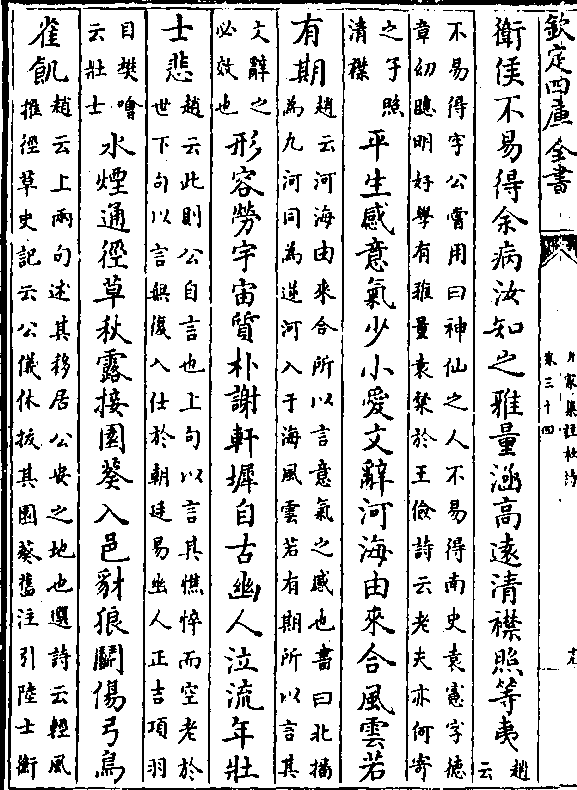 欽定四庫全書
九家集註杜詩
卷三十四
衛侯不易得余病汝知之雅量涵高遠清襟照等夷
趙云
不易得字公嘗用曰神仙之人不易得南史袁憲字德
章幼聰明好學有雅量袁粲於王儉詩云老夫亦何寄
之子照
清襟
平生感意氣少小愛文辭河海由來合風雲若
有期
趙云河海由來合所以言意氣之感也書曰北播
為九河同為逆河入于海風雲若有期所以言其
文辭之
必效也
形容勞宇宙質朴謝軒墀自古幽人泣流年壯
士悲
趙云此則公自言也上句以言其憔悴而空老於
世下句以言無復入仕於朝廷易幽人正吉項羽
目樊噲
云壯士
水煙通徑草秋露接園葵入邑豺狼鬭傷弓鳥
雀飢
趙云上兩句述其移居公安之地也選詩云輕風
摧徑草史記云公儀休拔其園葵舊注引陸士衡